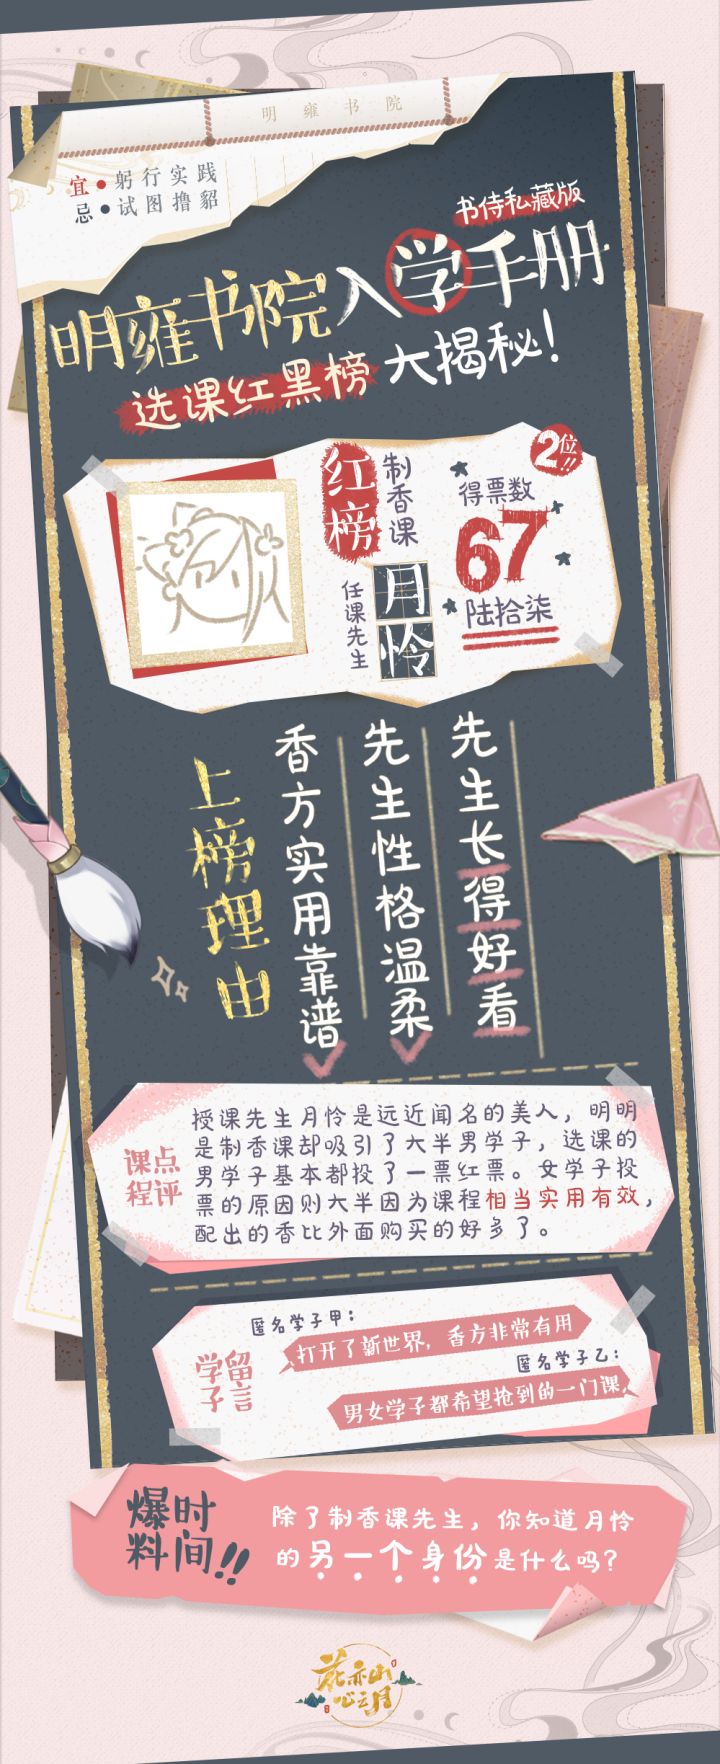 明雍书院
宜•躬行实践
忌•试图撸貂
书侍私藏版
明雍书院入学手册
选课红黑榜大揭秘！
红榜
制香课
任课先生
月怜
2位!!
得票数
67
陆拾柒
先生长得好看
先生性格温柔
香方实用靠谱
上榜理由
课程点评
授课先生月怜是远近闻名的美人，明明
是制香课却吸引了大半男学子，选课的
男学子基本都投了一票红票。女学子投
票的原因则大半因为课程相当实用有效，
配出的香比外面购买的好多了。
学子留言
匿名学子甲：
打开了新世界，香方非常有用
匿名学子乙：
男女学子都希望抢到的一门课
爆料时间!!
除了制香课先生，你知道月怜
的另一个身份是什么吗？
花亦山
心之月